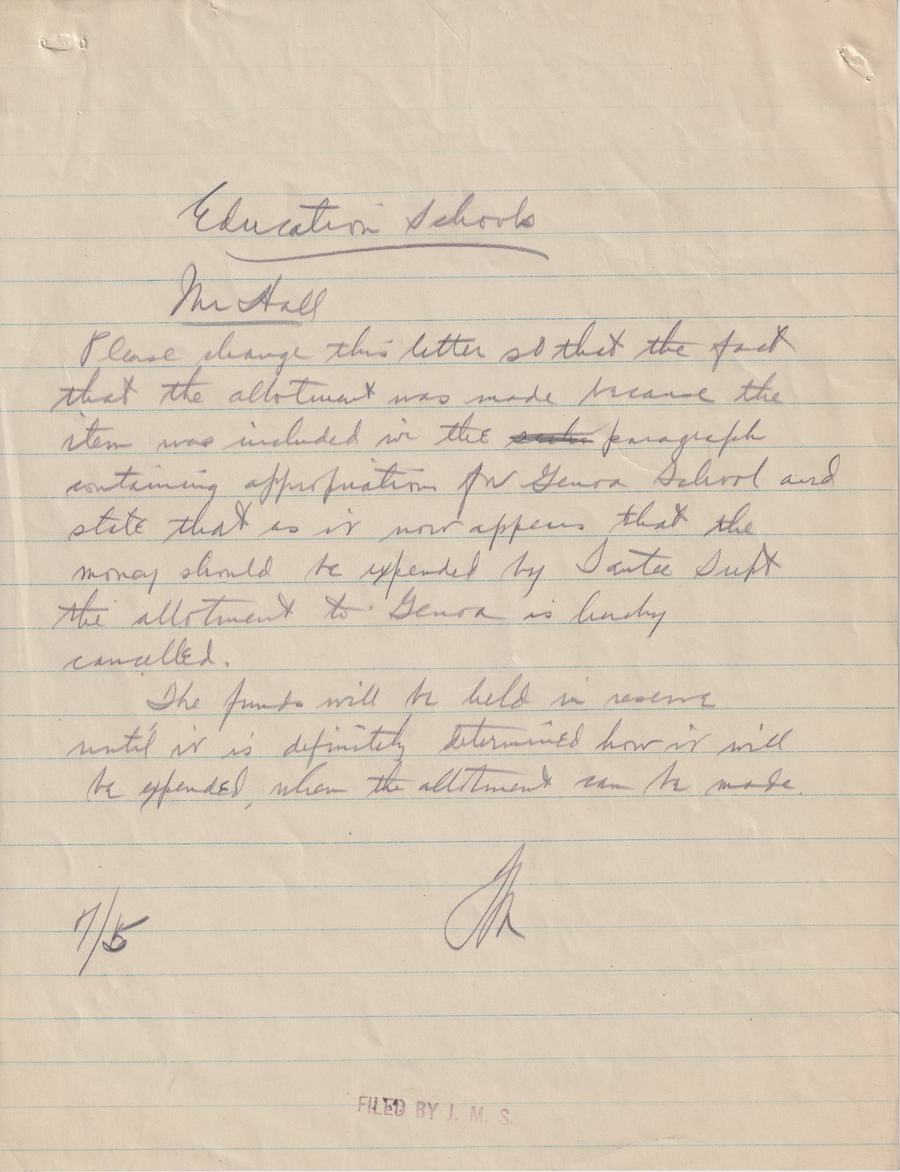 Education Schools
Mr Hall
Please change this letter so that the fact
that the allotment was made because the
item was included in the paragraph
containing appropriations for Genoa School and
state that as it now appears that the
money should be expended by Santee Supt
the allotment to Genoa is hereby
cancelled.
The funds will be held in reserve
until it is definitely determined how it will
be expended, when the allotment can be made.
7/5
FILED BY J. M. S.